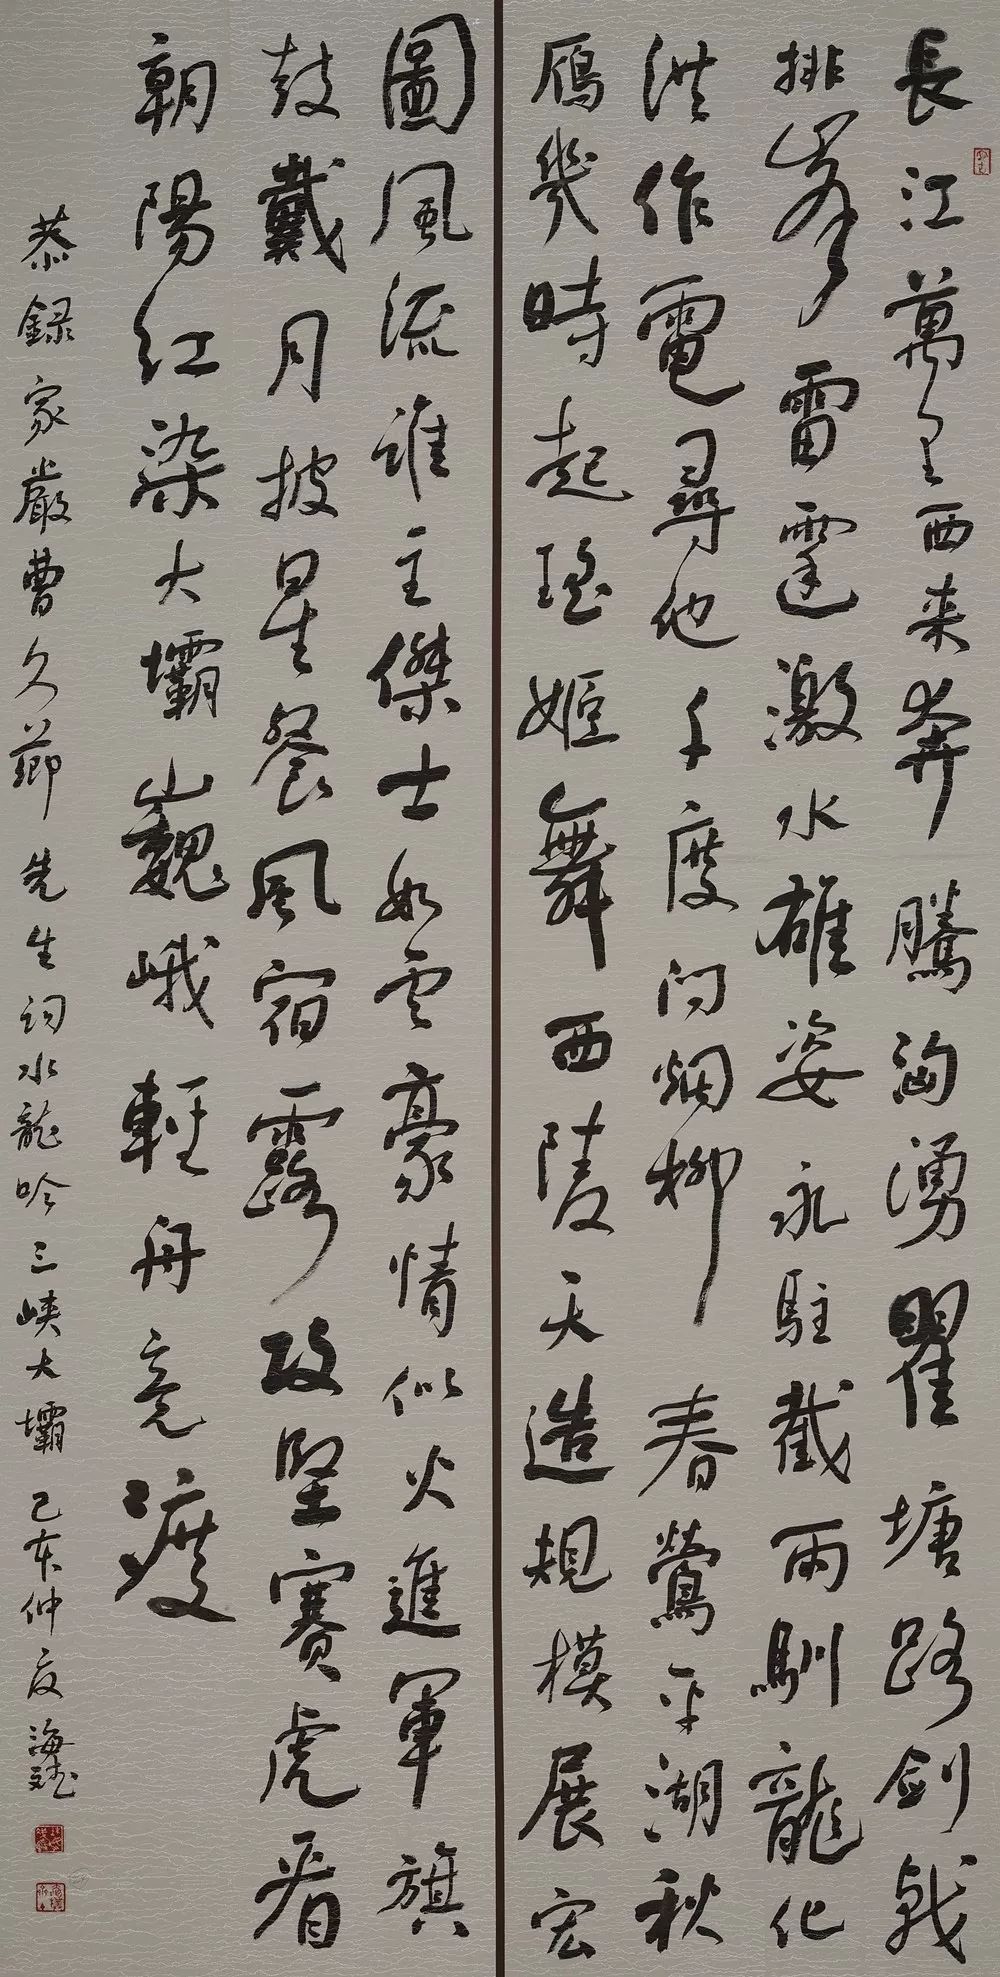 長江萬里西来奔騰洶湧瞿塘路劍戟
排峯雷霆激水雄姿永駐截雨馴龍化
洪作電尋他千度問烟柳春鶯平湖秋
雁幾時起瑶姬舞西陵天造規模展宏
圖風流誰主傑士如雲豪情似火進軍旗
鼓戴月披星餐風宿露攻堅賽虎看
朝陽紅染大壩巍峨輕舟竞渡
恭録家嚴曹久節先生词水龍吟三峡大壩己亥仲夏海